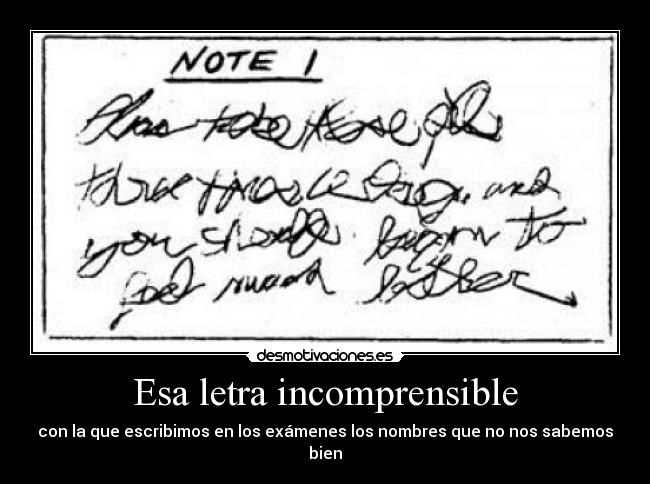 NOTE 1
Please take these pills
three times a day, and
you should begin to
feel much better
desmotivaciones.es
Esa letra incomprensible
con la que escribimos en los exámenes los nombres que no nos sabemos
bien